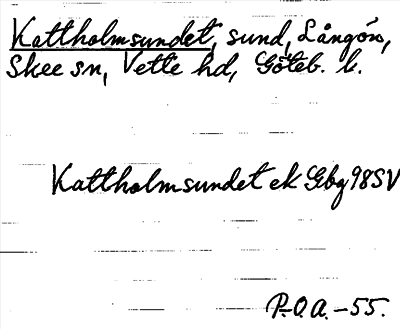 Kattholmsundet, sund, Långön,
Skee sn, Vette hd, Göteb. l.
Kattholmsundet ek Gbg 98SV
P.O.A. -55.